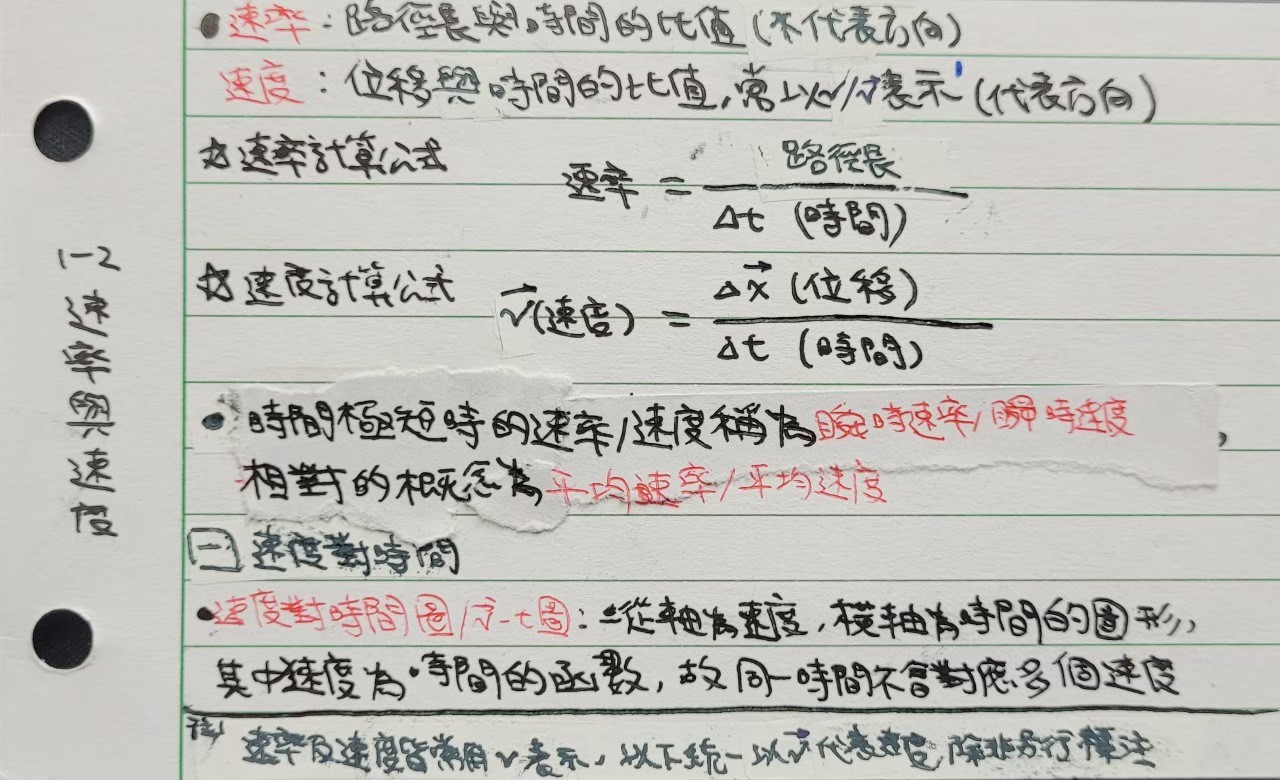 •速率：路徑長與時間的比值(不代表方向)
速度：位移與時間的比值,常以v/v⃗表示(代表方向)
☆速率計算公式
速率 = 路徑長 / Δt (時間)
☆速度計算公式
v⃗(速度) = Δx⃗ (位移) / Δt (時間)
1-2 速率與速度
•時間極短時的速率/速度稱為瞬時速率/瞬時速度,
相對的概念為平均速率/平均速度
㊀速度對時間
•速度對時間圖/v⃗-t圖：一從軸為速度,橫軸為時間的圖形,
其中速度為時間的函數,故同一時間不會對應多個速度
註 速率及速度皆常用v表示,以下統一以v⃗代表速度,除非另行標注